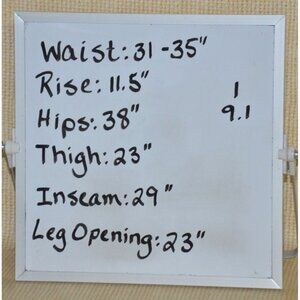 Waist: 31-35"
Rise: 11.5"
Hips: 38"
Thigh: 23"
Inseam: 29"
Leg Opening: 23"
1
9.1